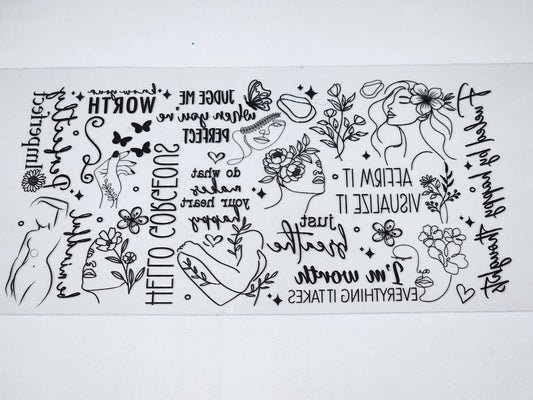 Perfectly
Imperfect
know your
WORTH
HELLO GORGEOUS
JUDGE ME
when you're
PERFECT
do what
makes
your heart
happy
just
breathe
AFFIRM IT
VISUALIZE IT
I'm worth
EVERYTHING IT TAKES
Fueled by
thoughts